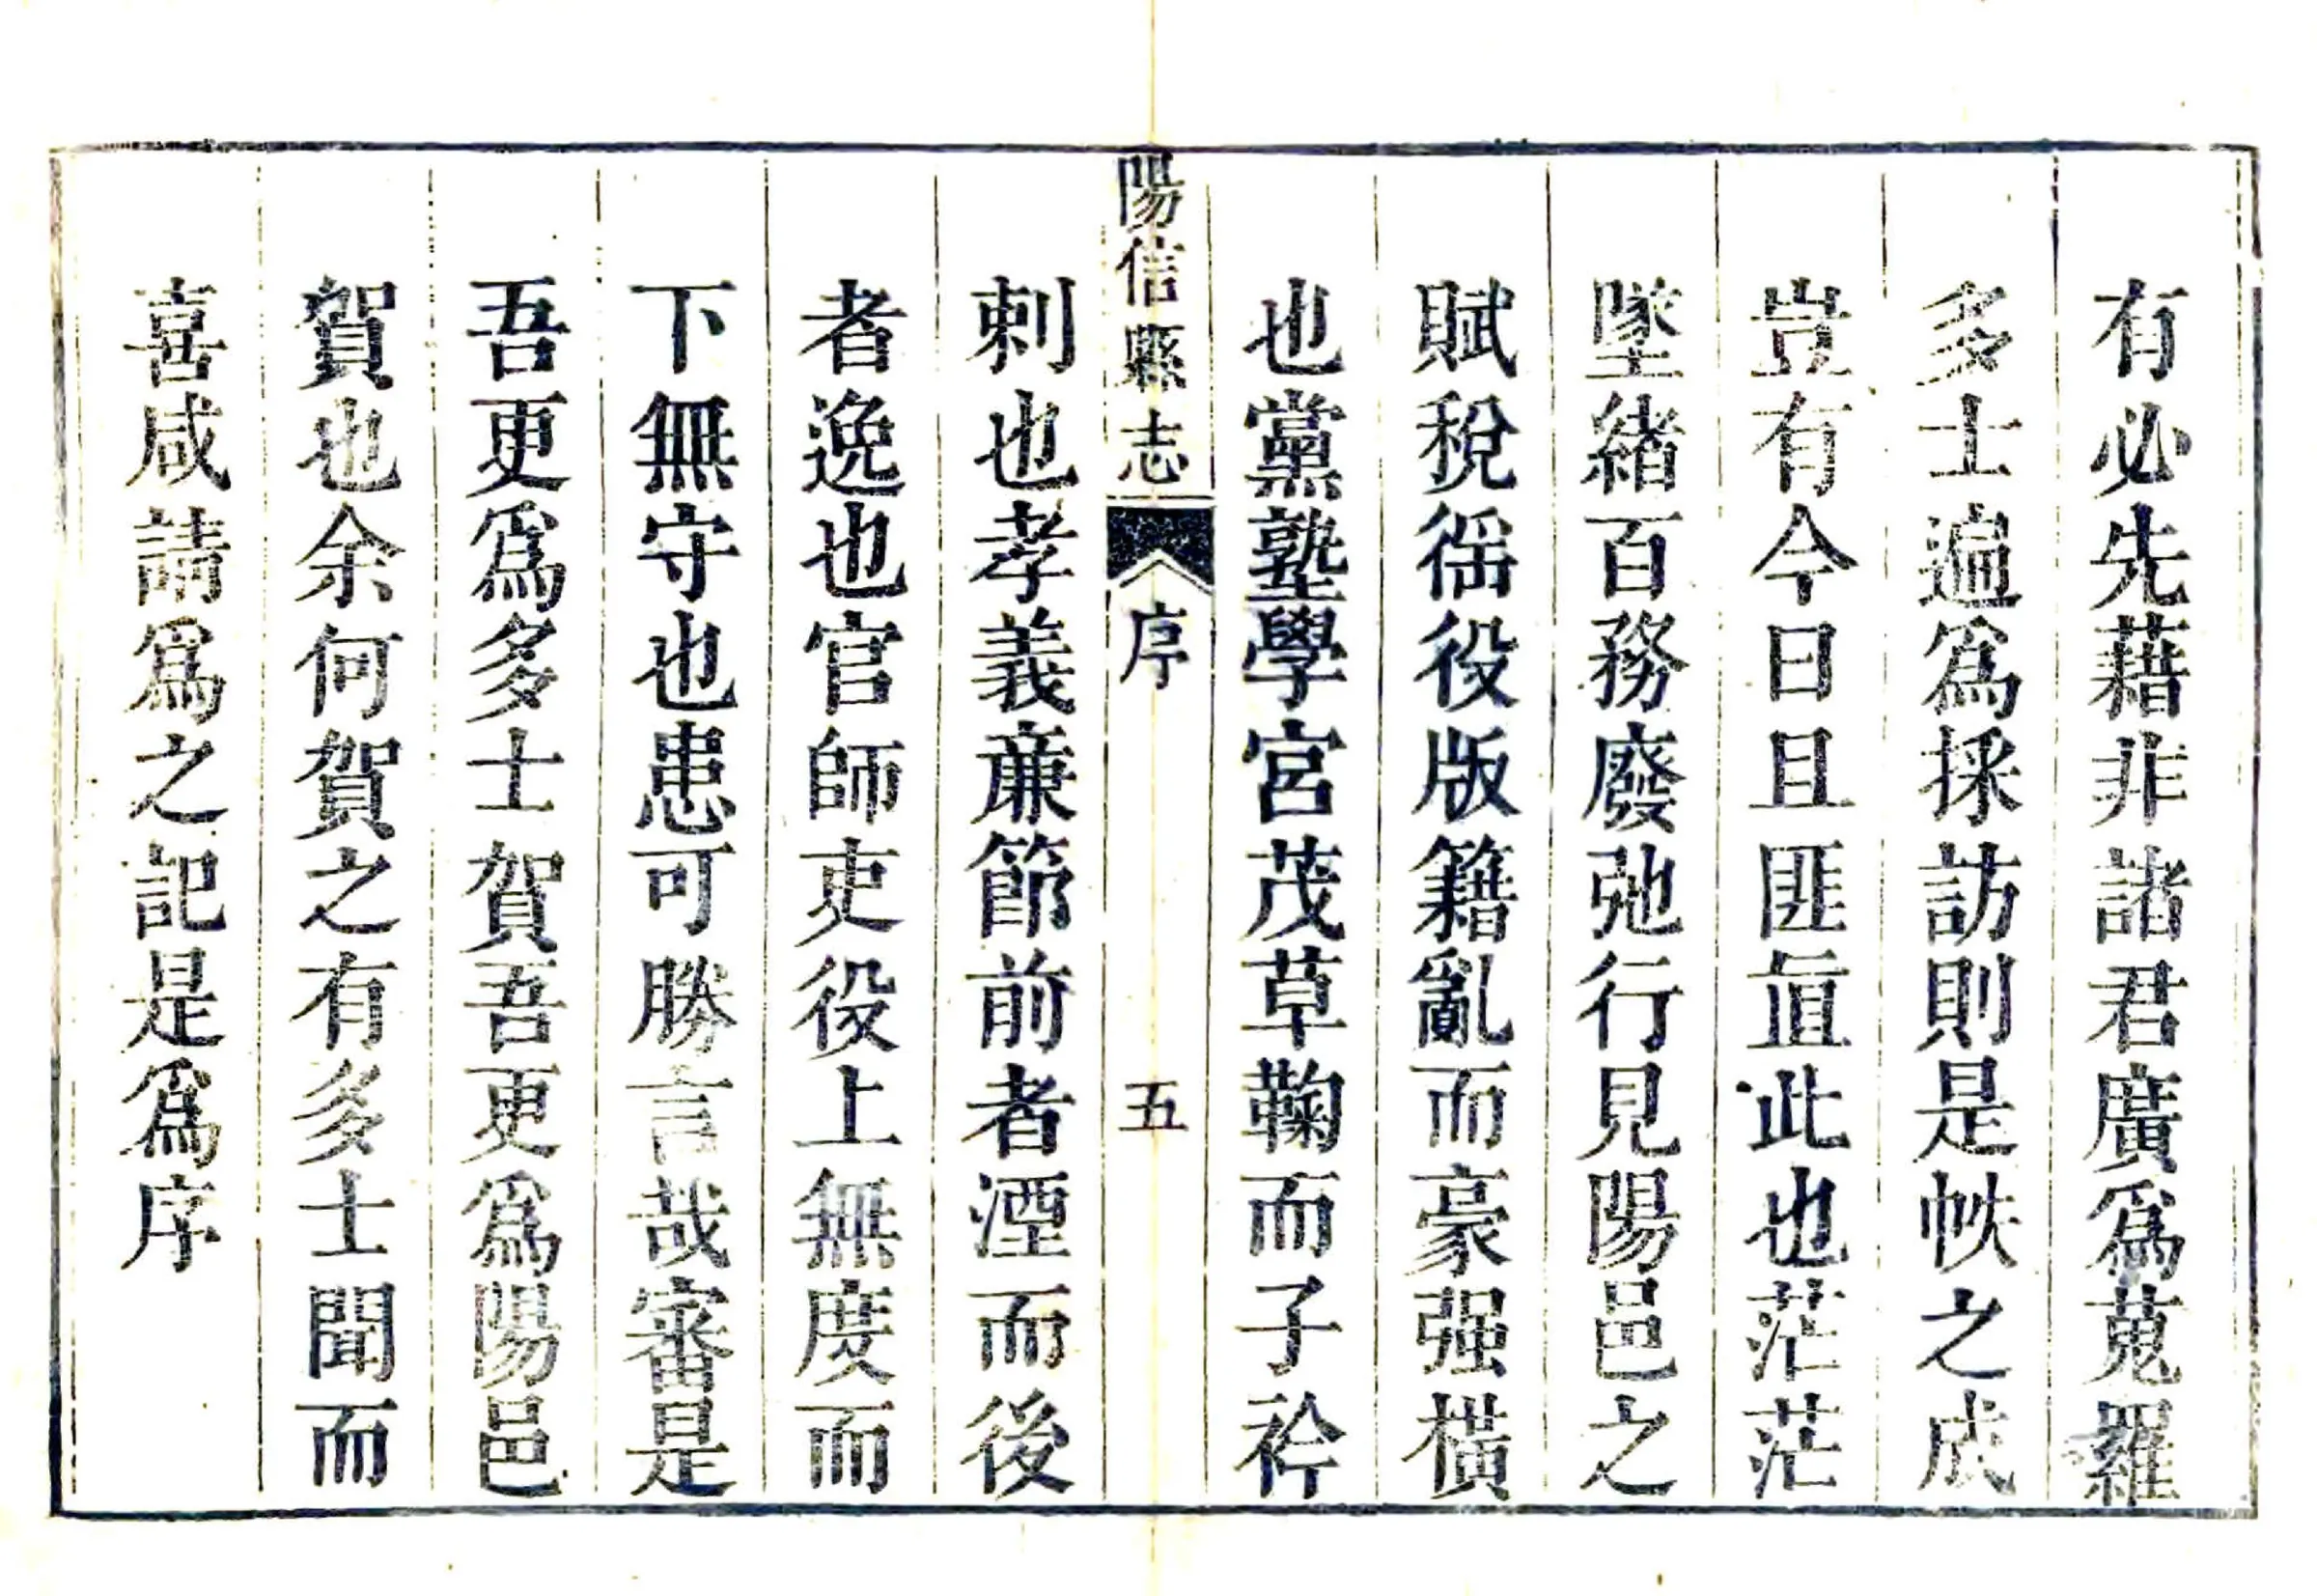 有必先藉非諸君廣爲蒐羅
多士遍爲採訪則是帙之成
豈有今日且匪直此也茫茫
墜緒百務廢弛行見陽邑之
賦稅徭役版籍亂而豪强橫
也黨塾學宮茂草鞠而子衿
陽信縣志 序 五
刺也孝義廉節前者湮而後
者逸也官師吏役上無度而
下無守也患可勝言哉審是
吾更爲多士賀吾更爲陽邑
賀也余何賀之有多士聞而
喜咸請爲之記是爲序